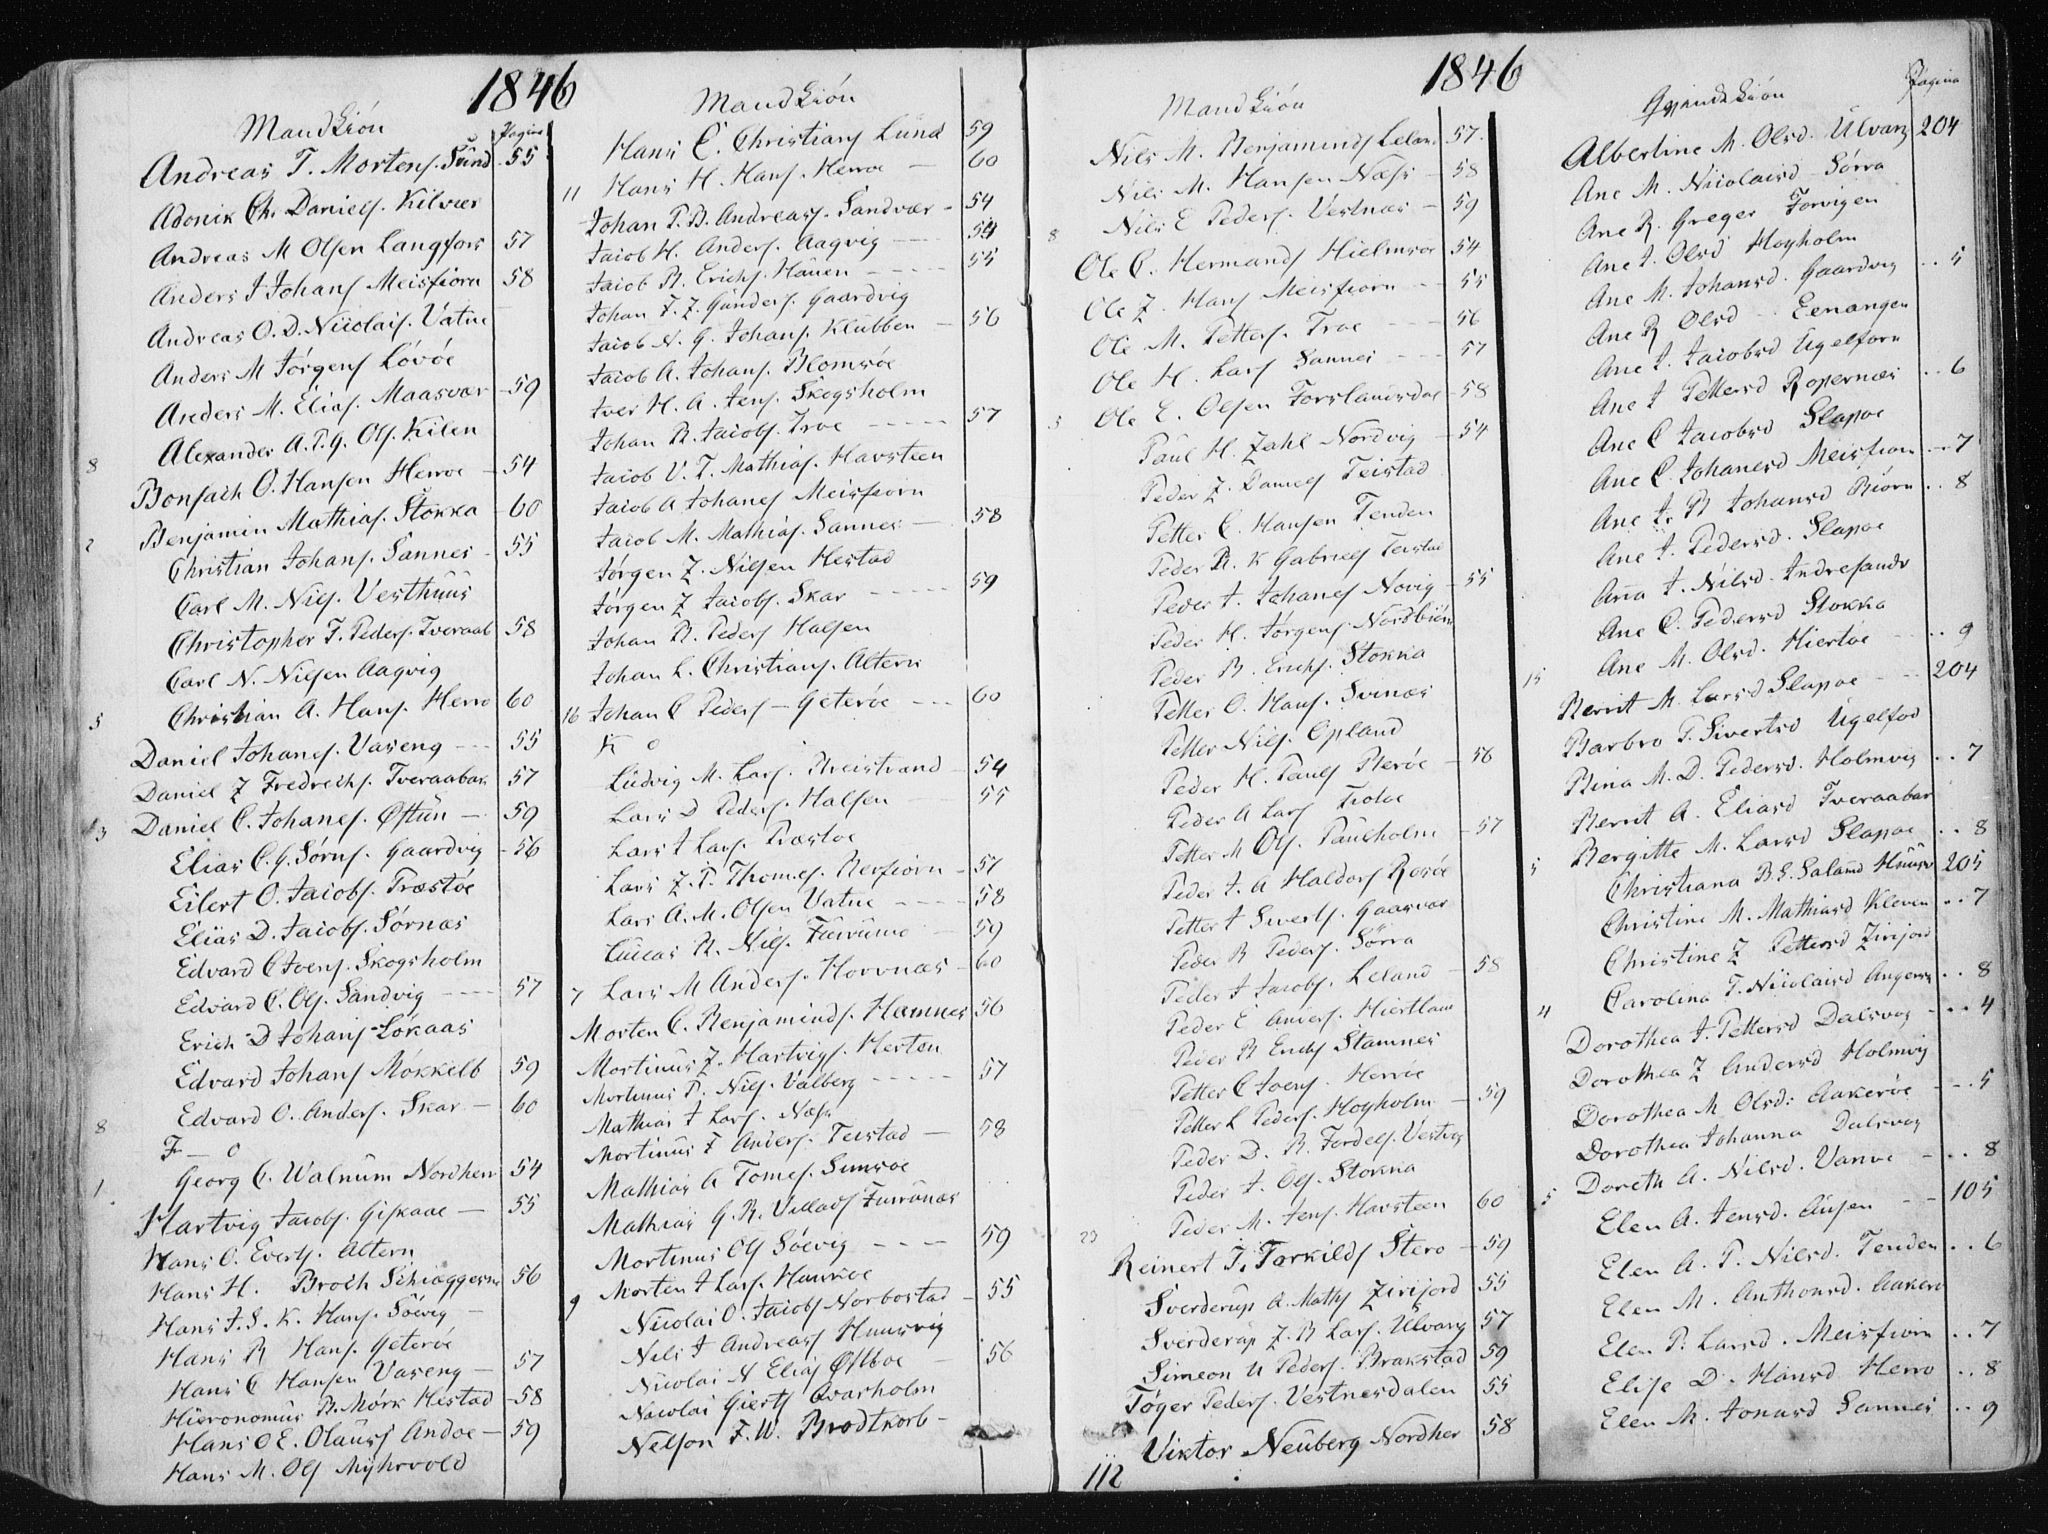 1846
Mandkión
Pagina
Andreas T. Mortens. Sund 55
Adonik Chr. Daniels. Kilvær
Andreas M Olsen Langfors 57
Anders J Johans Meisfiorn 58
Andreas O. D. Nicolais. Vatne
Anders M Jørgens Lóvóe
Anders M. Elias. Maasvær - 59
Alexander A. P. G. Ols. Kilen
8
Bonsach O. Hansen Herroe - 54
Benjamin Mathias. Stokka - 60
2
Christian Johans. Sannes - 55
Carl M. Nils. Vesthuus
Christopher F. Peders. Tveraab 58
Carl N. Nilsen Aagvig
Christian A. Hans. Herro 60
5
Daniel Johanes. Vaseng - - - 55
Daniel Z Fredrechs. Tveraabak 57
Daniel C. Johanes. Østun - 59
3
Elias C. G. Sørns. Gaardvig - 56
Eilert O. Jacobs. Træstóe
Elias D. Jacobs. Sórnæs
Edvard C Ivers. Skogsholm
Edvard C. Ols. Sandvig - - - 57
Erich D Johans Lókaas
Edvard Johans Mókkelb 59
Edvard O. Anders. Skar - 60
8
F - o
Georg C. Walnum Nordher 54
1
Hartvig Jacobs. Giskaae - 55
Hans O. Everts. Altern
Hans H. Broch Schieggesnæs 56
Hans J. S. K. Hans. Sóevig -
Hans R Hans. Geteróe
Hans C Hansen Vaseng - 57
Hieronomus B. Mórk Hestad - 58
Hans O E. Olaus. Andoe - 59
Hans M. Ols Myhrvold
Mandkión
Hans C. Christians Lund 59
11 Hans H. Hans. Herroe - 60
Johan P. B. Andreass. Sandvær - 54
Jacob H. Anders. Aagvig - - 54
Jacob B. Erichs. Hauen - - - - 55
Johan F. Z. Gunders. Gaardvig
Jacob N. G. Johans. Klubben - 56
Jacob A. Johans. Blomsóe
Iver H. A. Jens. Skogsholm
Johan B. Jacobs. Troe - - - - - 57
Jacob V. T. Mathias. Havsteen
Jacob A Johanes Meisfiorn
Jacob M. Mathias. Sannes - 58
Jórgen Z. Nilsen Hestad
Jórgen Z Jacobs. Skar - - - - - 59
Johan B. Peders Halsen
Johan L. Christians. Altern
16 Johan C Peders - Geteróe - - - 60
K o
Ludvig M. Lars. Breistrand - 54
Lars D Peders. Halsen - 55
Lars J Lars. Præstoe
Lars Z. P. Thomes. Berfiorn - 57
Lars A. M. Olsen Vatne - - - - 58
Lucas R. Nils. - 59
7 Lars M Anders. Hovvnæs - 60
Morten C. Benjamins. Hæmnes 56
Mortinus Z. Hartvigs. Hesten
Mortinus P. Nils. Valberg - - - - - 57
Mathias J Lars. Næss
Mortinus F Anders. Teistad - 58
Mathias A Tomes. Simsoe
Mathias G. R. Villads
Mortinus Ols Sóevig - - - - 59
Morten J Lars.
9
Nicolai O. Jacobs Norbostad - 55
Nils J Andreass Huusvig
Nicolai N Elias Østboe - 56
Nicolai Gierts Qvarholm
Nelson F. W. Brodtkorb -
1846
Mandkión
Nils M. Benjamins Leland 57
Nils M. Hansen Næss - 58
8 Nils E Peders. Vestnæs - 59
Ole C. Hermands Hielmsóe 54
Ole Z. Hans Meisfiorn - - 55
Ole M. Petters. Troe - - - 56
Ole H. Lars Sannes - - - 57
5 Ole E. Olsen Forslandsdal - 58
Paul H. Zahl Nordvig - 54
Peder Z. Daniels Teistad
Petter C. Hansen Tenden
Peder R. K Gabriels Teistad
Peder J. Johanes Novig - 55
Peder H. Jórgens
Peder B. Erichs. Stokka
Petter O. Hans. Svinæs
Petter Nils. Opland
Peder H. Pauls Beróe - 56
Peder A Lars
Petter M Ols. Paulsholm - 57
Peder J. A Haldors Rosóe
Petter J Siverts. Gaasvær
Peder B Peders. Sórra
Peder J Jacobs. Leland - 58
Peder E Anders. Hiertland
Peder B Erichs Stamnes
Petter C Ivers. Herróe
Petter L Peders. Hoyholm - 59
Peder D. B. Fordels. Vestvig
Peder J. Ols. Stokka
Peder M. Jens. Havsteen 60
23
Reinert T. Torkilds Stero - 59
Sverdrup A. Maths Zirifjord 55
Sverdrup Z. B Lars. Ulvang 57
Simeon U Peders. Brakstad 59
Tóger Peders. Vestnesdalen 55
Viktor Neuberg Nordher 58
112
Qvindekión
Pagina
Albertine M. Olsd. Ulvang 204
Ane M. Nicolaisd - Sórra
Ane R. Greger Forvigen
Ane J. Olsd Hoyholm
Ane M. Johansd. Gaardvig - - 5
Ane R Olsd - Eenangen
Ane J. Jacobsd Ugelforn
Ane J Pettersd Ropernæs - - 6
Ane C Jacobsd Slapoe
Ane C. Johanesd Meisfiorn - - 7
Ane J. B Johansd Biórn - - 8
Ane J. Pedersd. Slapoe
Ana J. Nilsd. Indresandv
Ane C. Pedersd Stokka
15 Ane M. Olsd. Hiertóe - - 9
Berrit M. Larsd Slapoe - - 204
Barbro P. Sivertsd Ugelfod
Bina M. D. Pedersd. Holmvig - - 7
Berrit A. Eliasd Tveraabak
5 Bergitte M. Larsd Slapoe - - 8
Christiana B. E. Salamd Huusv 205
Christine M. Mathiasd Kleven - - 7
Christine Z Pettersd Zirijord
4 Carolina T. Nicolaisd Angersn - - 8
Dorothea J. Pettersd Dalsvog - - - 4
Dorothea Z Andersd Holmvig
Dorothea M Olsd: Aakeróe - - - 5
Dorothea Johanna Dalsvog
5 Doreth A. Nilsd. Vanve - - - 8
Elen A. Jensd. Ausen - - 105
Elen A. P. Nilsd. Tenden - - 6
Elen M. Anthonsd. Aakero
Elen P. Larsd. Meisfiorn - - 7
Elise D. Hansd Herro - - 8
Elen M. Jonasd Sannes - - 9